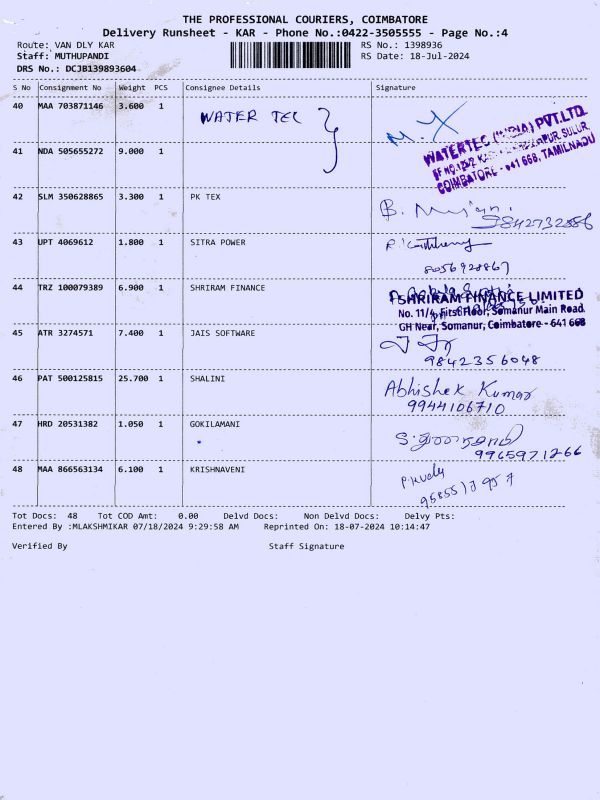 THE PROFESSIONAL COURIERS, COIMBATORE
Delivery Runsheet - KAR - Phone No.:0422-3505555 - Page No.:4
Route: VAN DLY KAR
RS No.: 1398936
Staff: MUTHUPANDI
RS Date: 18-Jul-2024
DRS No.: DCJB139893604
S No Consignment No Weight PCS Consignee Details Signature
40 MAA 703871146 3.600 1 WATER TEC
WATERTEC (INDIA) PVT.LTD.
41 NDA 505655272 9.000 1
COIMBATORE - 641 668, TAMILNADU
42 SLM 350628865 3.300 1 PK TEX
9842732886
43 UPT 4069612 1.800 1 SITRA POWER
8056928867
44 TRZ 100079389 6.900 1 SHRIRAM FINANCE
SHRIRAM FINANCE LIMITED
No. 11/4, First Floor, Somanur Main Road
GH Near, Somanur, Coimbatore - 641 668
45 ATR 3274571 7.400 1 JAIS SOFTWARE
9842356048
46 PAT 500125815 25.700 1 SHALINI Abhishek Kumar
9944106710
47 HRD 20531382 1.050 1 GOKILAMANI
9965971266
48 MAA 866563134 6.100 1 KRISHNAVENI
Tot Docs: 48 Tot COD Amt: 0.00 Delvd Docs: Non Delvd Docs: Delvy Pts:
Entered By :MLAKSHMIKAR 07/18/2024 9:29:58 AM Reprinted On: 18-07-2024 10:14:47
Verified By Staff Signature